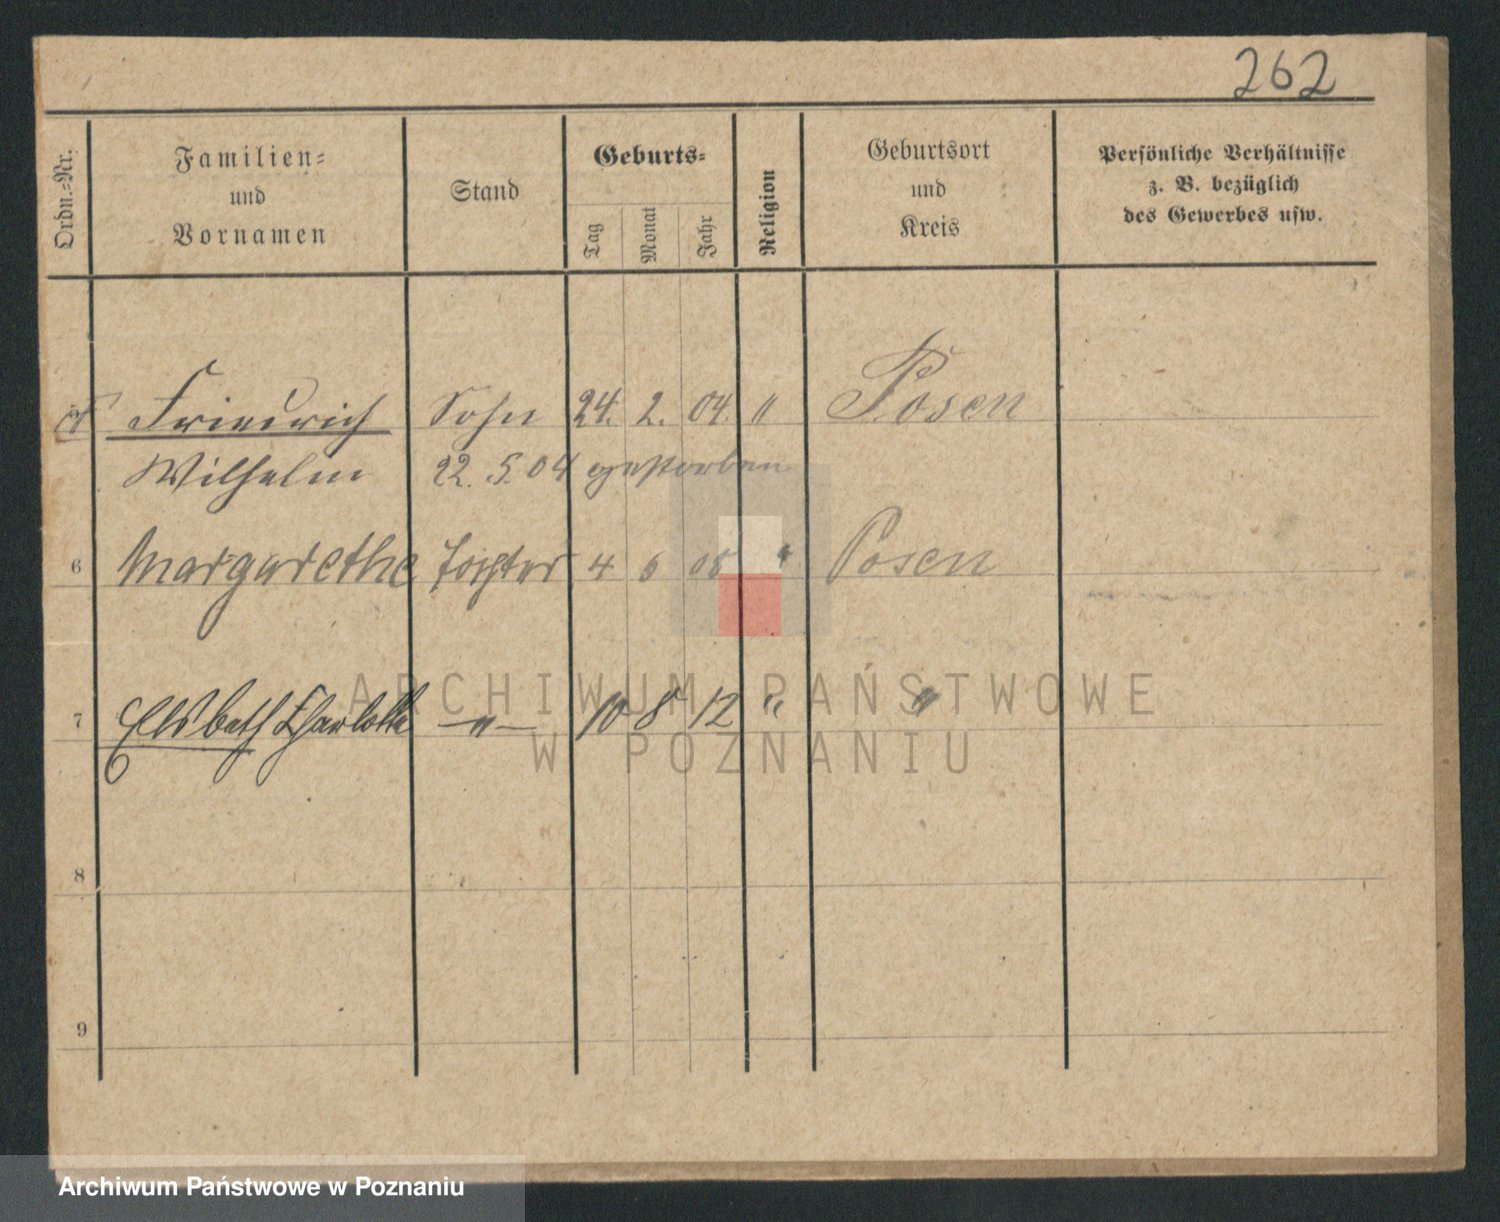 262
Ordn.-Nr. Familien- und Vornamen Stand Geburts- Tag Monat Jahr Religion Geburtsort und Kreis Persönliche Verhältnisse z. B. bezüglich des Gewerbes usw.
Friedrich Sohn 24. 2. 04. " Posen
Wilhelm 22. 5. 04 gestorben
6 Margarethe Tochter 4 6 08 " Posen
7 Elsbeth Charlotte — " — 10 8 12 " "
8
9
ARCHIWUM PAŃSTWOWE
W POZNANIU
Archiwum Państwowe w Poznaniu